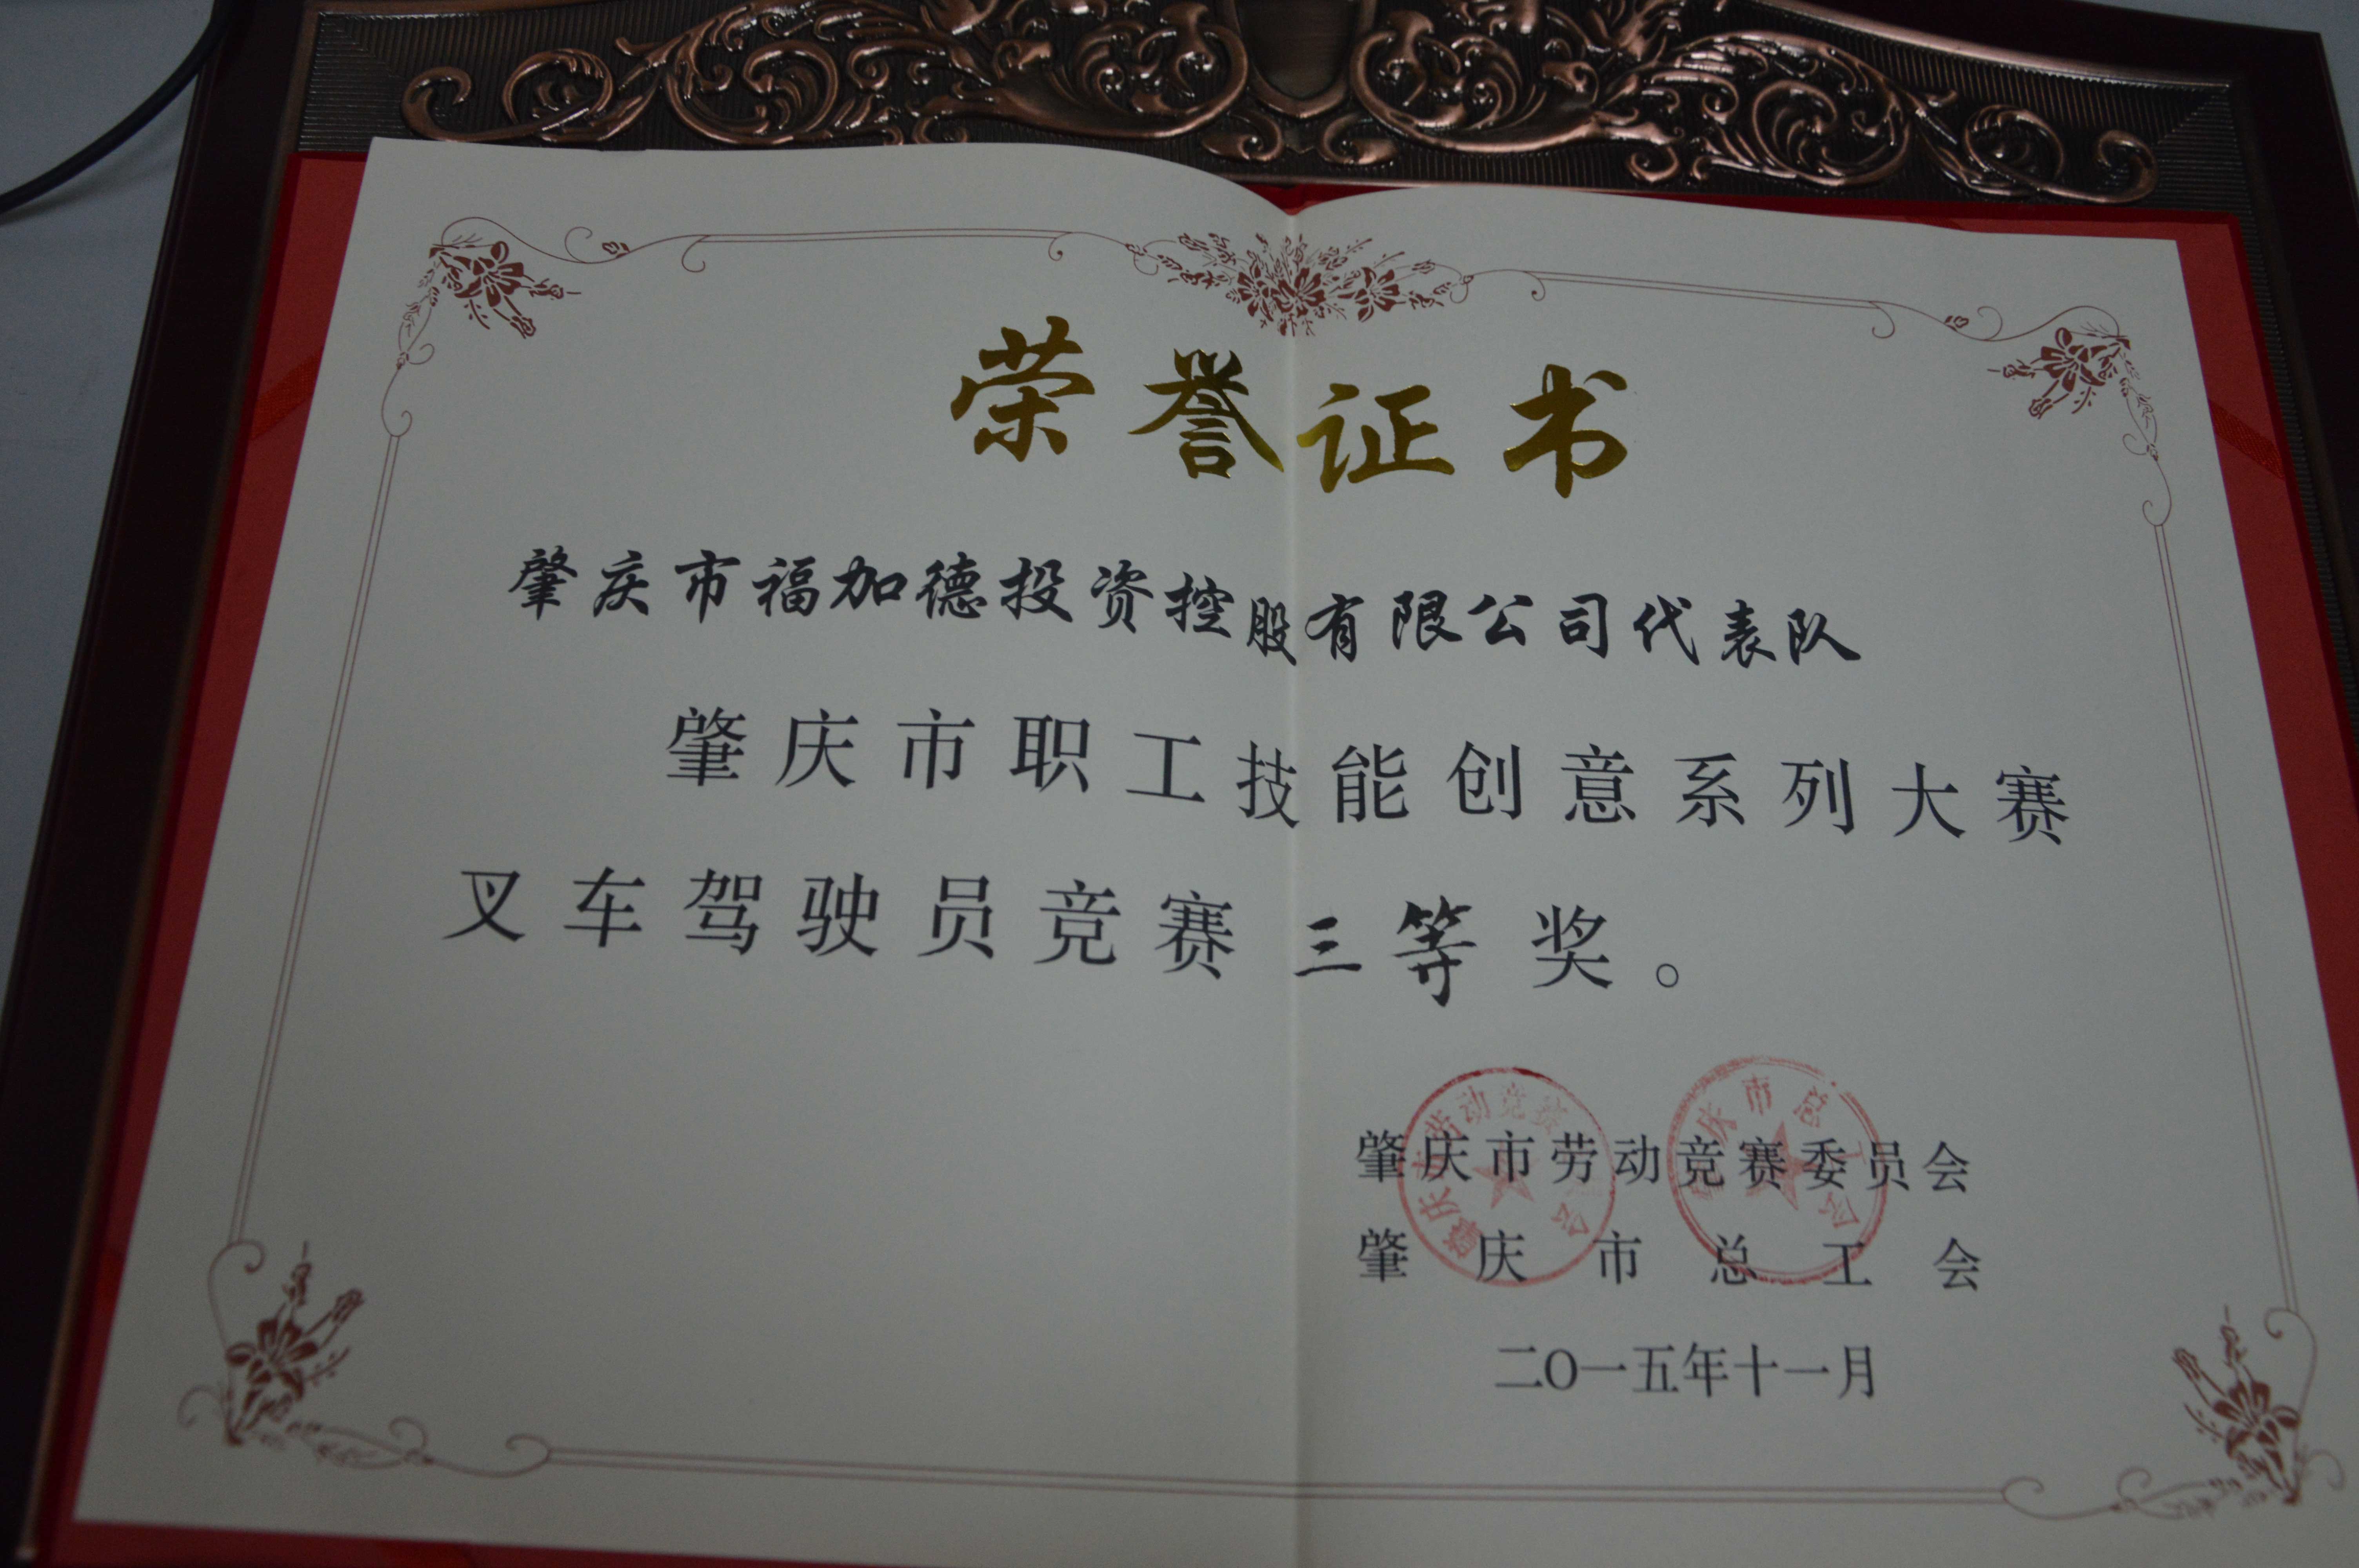 荣誉证书
肇庆市福加德投资控股有限公司代表队
肇庆市职工技能创意系列大赛
叉车驾驶员竞赛三等奖。
肇庆市劳动竞赛委员会
肇庆市总工会
二〇一五年十一月